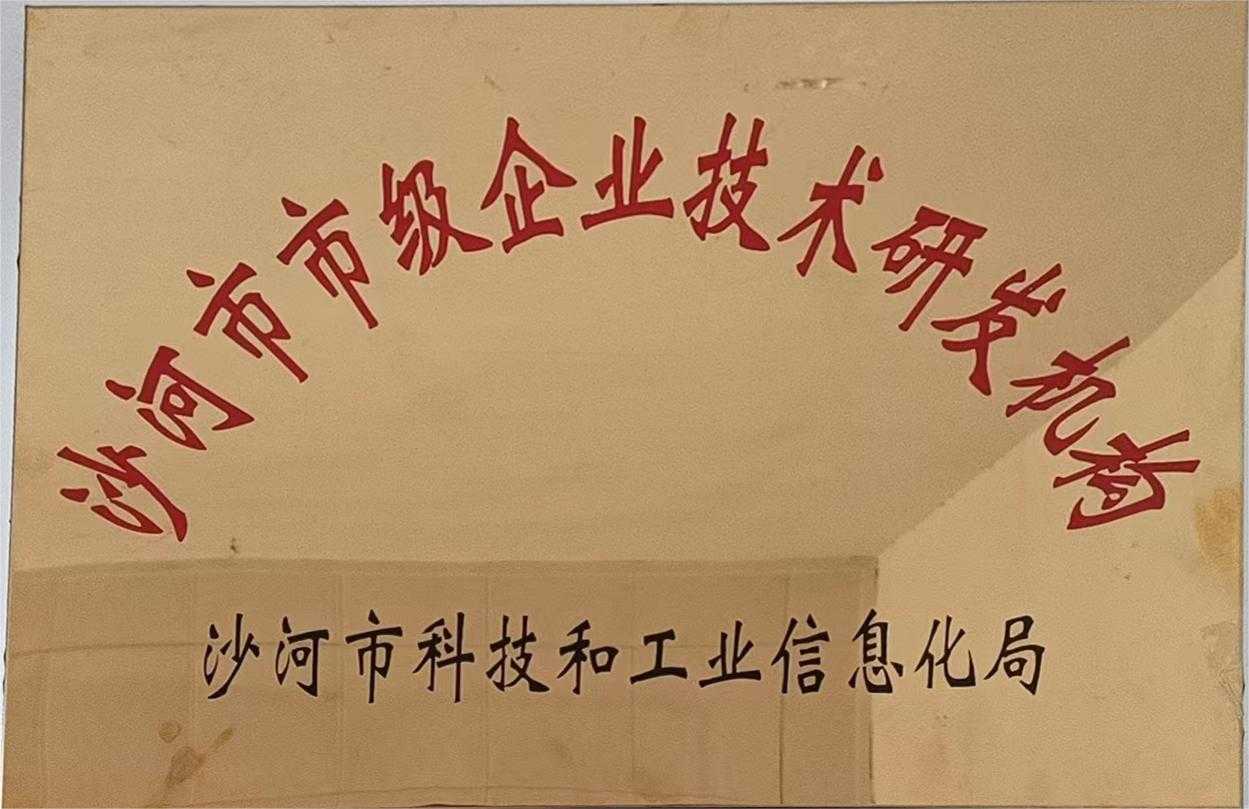 沙河市市级企业技术研发机构
沙河市科技和工业信息化局